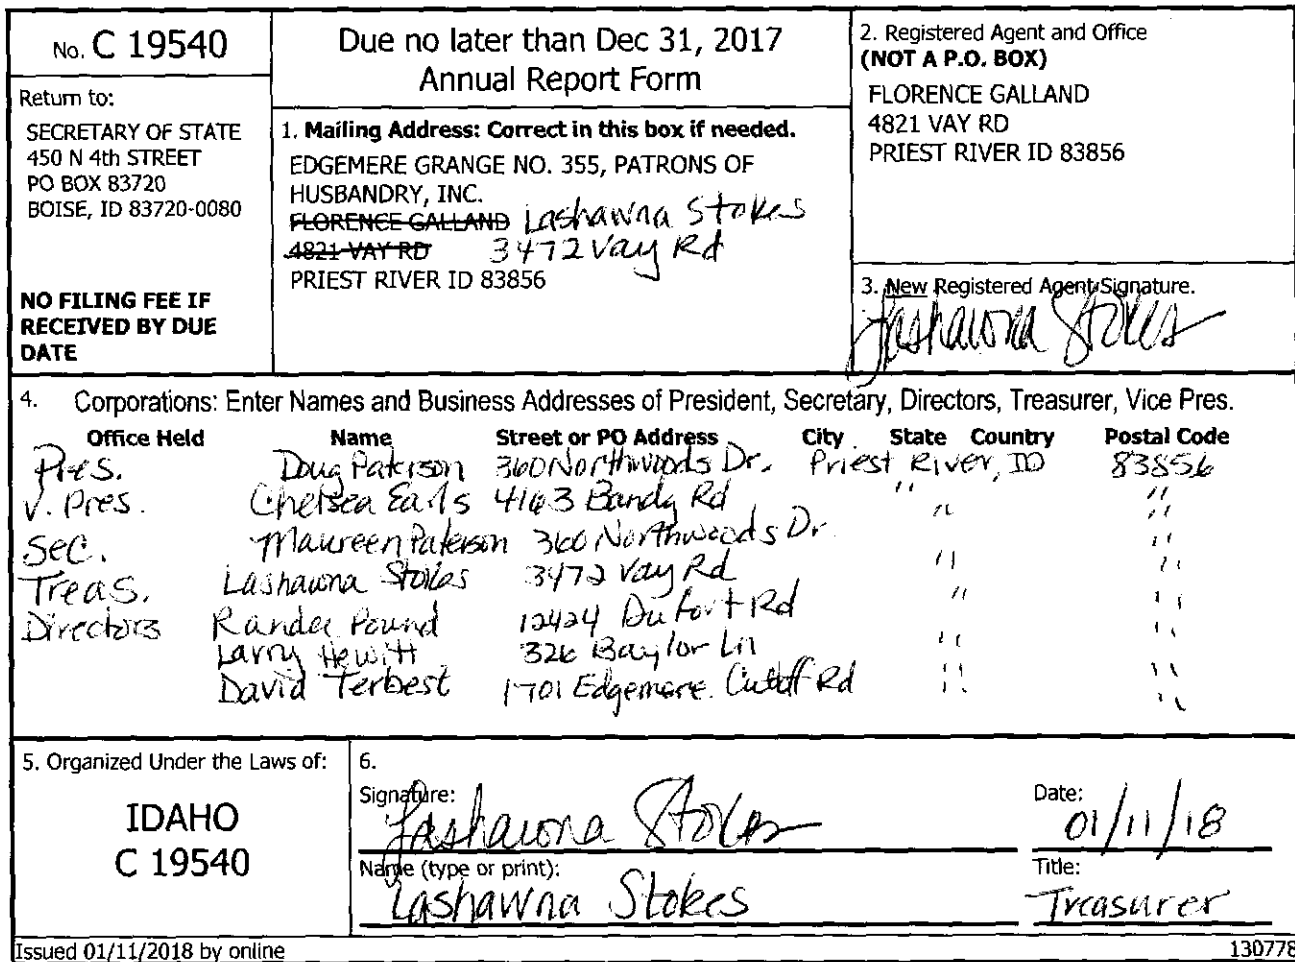 No. C 19540
Return to:
SECRETARY OF STATE
450 N 4th STREET
PO BOX 83720
BOISE, ID 83720-0080
NO FILING FEE IF
RECEIVED BY DUE
DATE
Due no later than Dec 31, 2017
Annual Report Form
1. Mailing Address: Correct in this box if needed.
EDGEMERE GRANGE NO. 355, PATRONS OF
HUSBANDRY, INC.
FLORENCE GALLAND Lashawna Stokes
4821 VAY RD 3472 Vay Rd
PRIEST RIVER ID 83856
2. Registered Agent and Office
(NOT A P.O. BOX)
FLORENCE GALLAND
4821 VAY RD
PRIEST RIVER ID 83856
3. New Registered Agent Signature.
Lashawna Stokes
4. Corporations: Enter Names and Business Addresses of President, Secretary, Directors, Treasurer, Vice Pres.
Office Held Name Street or PO Address City State Country Postal Code
Pres. Doug Paterson 360 Northwoods Dr. Priest River, ID 83856
V. Pres. Chelsea Earls 4163 Bandy Rd " " "
Sec. Maureen Paterson 360 Northwoods Dr. " "
Treas. Lashawna Stokes 3472 Vay Rd " "
Directors Randee Pound 12424 Dufort Rd " "
Larry Hewitt 326 Baylor Ln " "
David Terbest 1701 Edgemere Cutoff Rd " "
5. Organized Under the Laws of:
IDAHO
C 19540
6.
Signature: Lashawna Stokes
Date: 01/11/18
Name (type or print): Lashawna Stokes
Title: Treasurer
Issued 01/11/2018 by online
130778